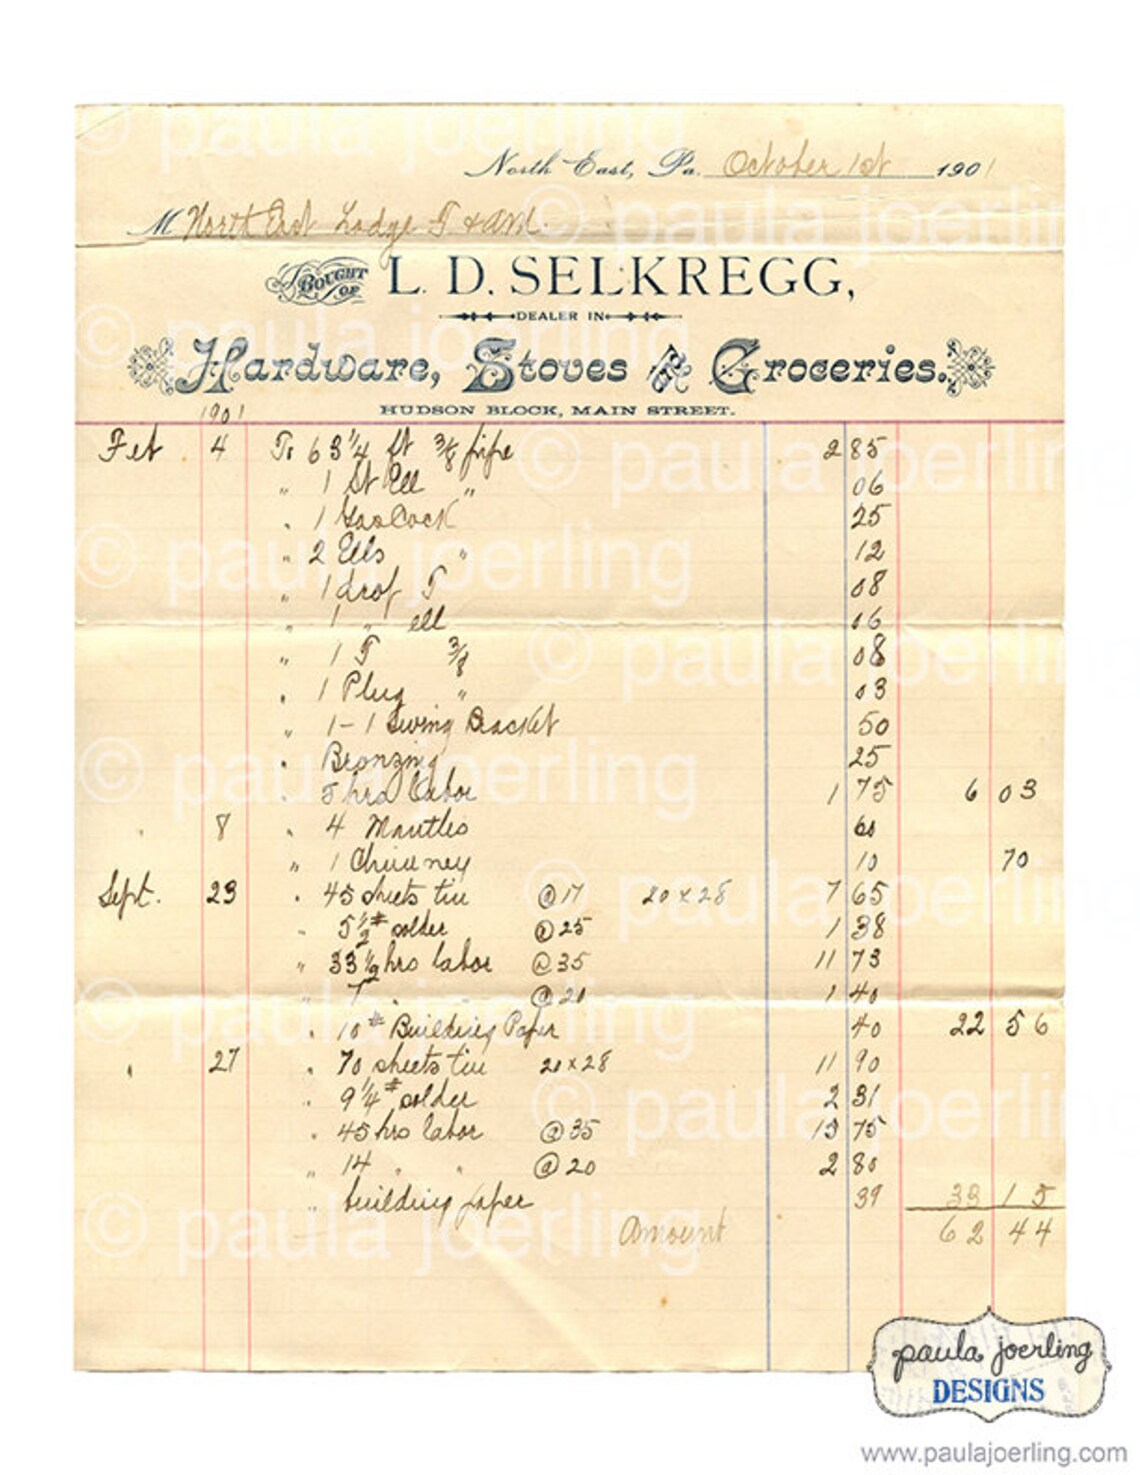 North East, Pa. October 1st 1901
M North East Lodge F & AM.
BOUGHT OF L. D. SELKREGG,
DEALER IN
Hardware, Stoves & Groceries.
HUDSON BLOCK, MAIN STREET.
1901
Feb 4 To 63 1/4 ft 3/8 pipe 2 85
" 1 St Ell " 06
" 1 Gas Cock 25
" 2 Ells " 12
" 1 drop T 08
" 1 " ell 06
" 1 T 3/8 08
" 1 Plug " 03
" 1-1 Swing Bracket 50
" Bronzing 25
" 5 hrs labor 1 75 6 03
" 8 " 4 Mantles 60
" 1 Chimney 10 70
Sept. 23 " 45 sheets tin @ 17 20 x 28 7 65
" 5 1/2 # solder @ 25 1 38
" 33 1/2 hrs labor @ 35 11 73
" 7 " " @ 20 1 40
" 10 # Building Paper 40 22 56
" 27 " 70 sheets tin 20 x 28 11 90
" 9 1/4 # solder 2 31
" 45 hrs labor @ 35 15 75
" 14 " " @ 20 2 80
" building paper 39 33 15
Amount 62 44
© paula joerling
paula joerling
DESIGNS
www.paulajoerling.com